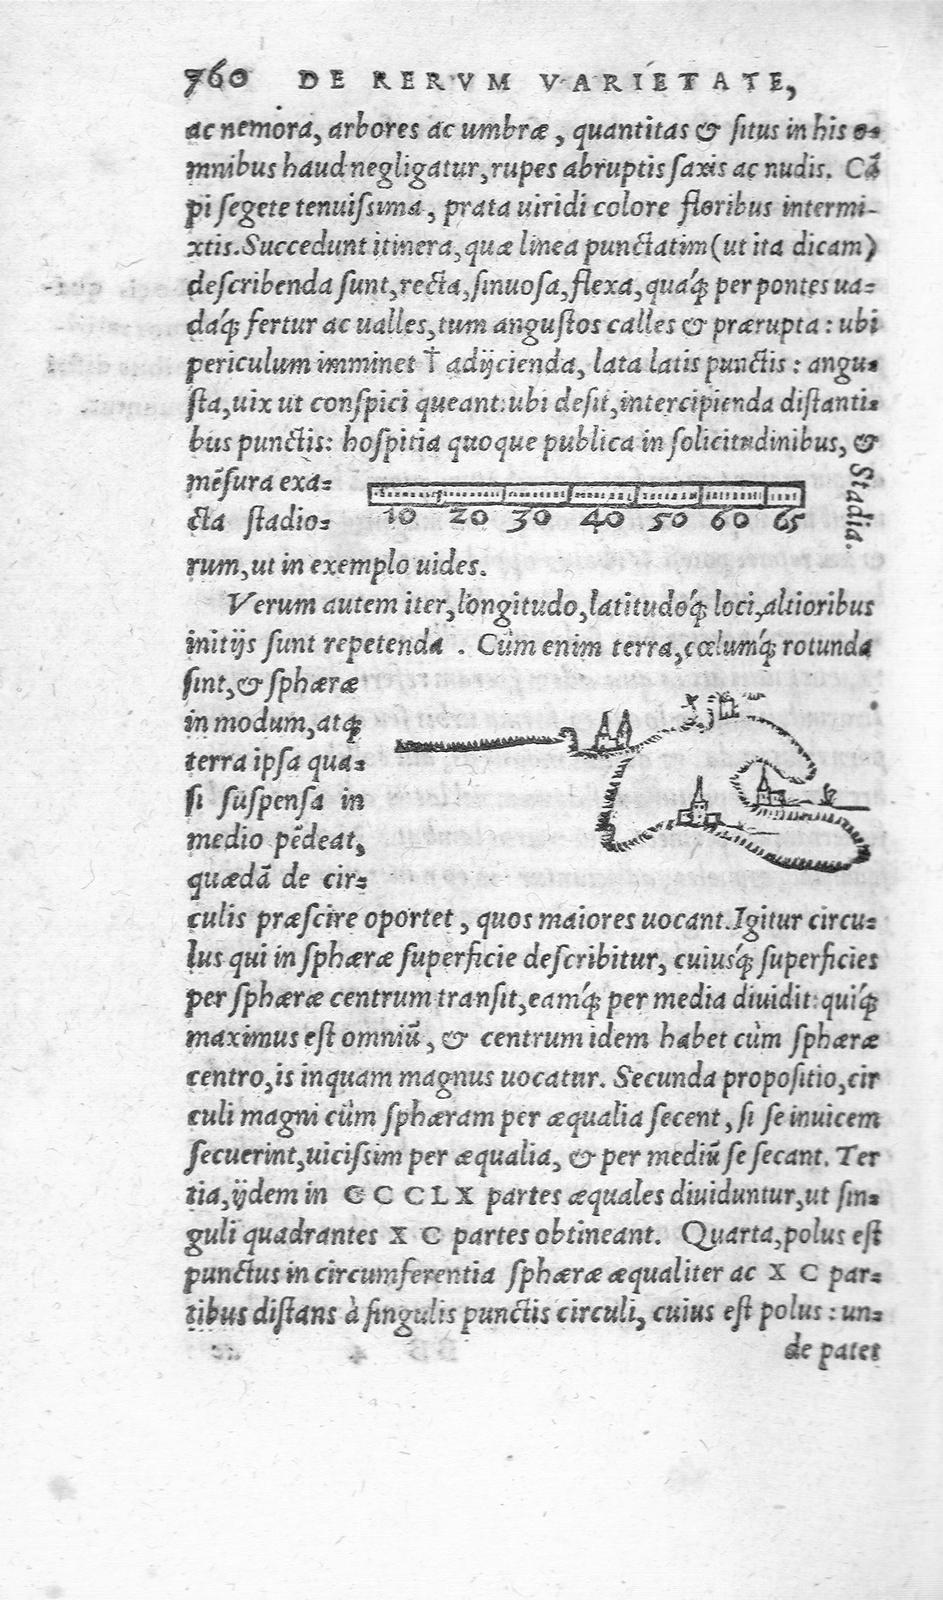 760 DE RERVM VARIETATE,
ac nemora, arbores ac umbræ, quantitas & ſitus in his o-
mnibus haud negligatur, rupes abruptis ſaxis ac nudis. Cã
pi ſegete tenuiſsima, prata uiridi colore floribus intermi-
xtis. Succedunt itinera, quæ linea punctatim (ut ita dicam)
deſcribenda ſunt, recta, ſinuoſa, flexa, quáq; per pontes ua-
dáq; fertur ac ualles, tum anguſtos calles & prærupta: ubi
periculum imminet † adijcienda, lata latis punctis: angu-
ſta, uix ut conſpici queant: ubi deſit, intercipienda diſtanti-
bus punctis: hoſpitia quoque publica in ſolicitudinibus, &
mẽſura exa-
cta ſtadio-
10 20 30 40 50 60 65
Stadia.
rum, ut in exemplo uides.
Verum autem iter, longitudo, latitudóq; loci, altioribus
initijs ſunt repetenda. Cùm enim terra, cœlumq́; rotunda
ſint, & ſphæræ
in modum, atq;
terra ipſa qua-
ſi ſuſpenſa in
medio pẽdeat,
quædã de cir-
culis præſcire oportet, quos maiores uocant. Igitur circu-
lus qui in ſphæræ ſuperficie deſcribitur, cuiusq́; ſuperficies
per ſphæræ centrum tranſit, eamq́; per media diuidit: quiq́;
maximus eſt omniũ, & centrum idem habet cùm ſphæræ
centro, is inquam magnus uocatur. Secunda propoſitio, cir
culi magni cùm ſphæram per æqualia ſecent, ſi ſe inuicem
ſecuerint, uiciſsim per æqualia, & per mediũ ſe ſecant. Ter
tia, ijdem in CCCLX partes æquales diuiduntur, ut ſin-
guli quadrantes XC partes obtineant. Quarta, polus eſt
punctus in circumferentia ſphæræ æqualiter ac XC par-
tibus diſtans à ſingulis punctis circuli, cuius eſt polus: un-
de patet